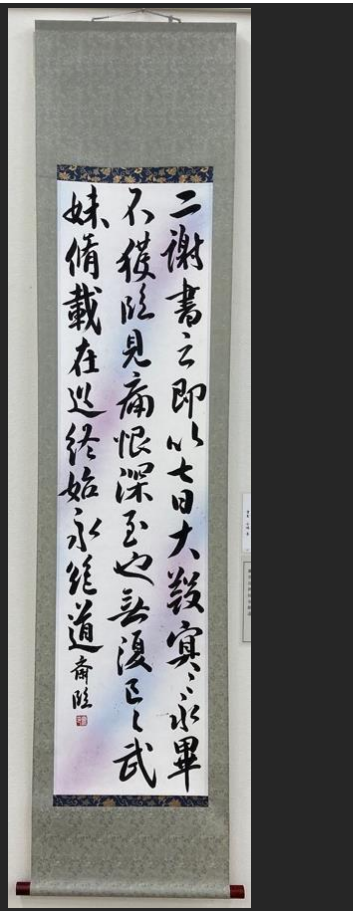 二謝書云即以七日大斂冥〻永畢
不獲臨見痛恨深至也無復已〻武
妹脩載在遠終始永絶道 斎臨